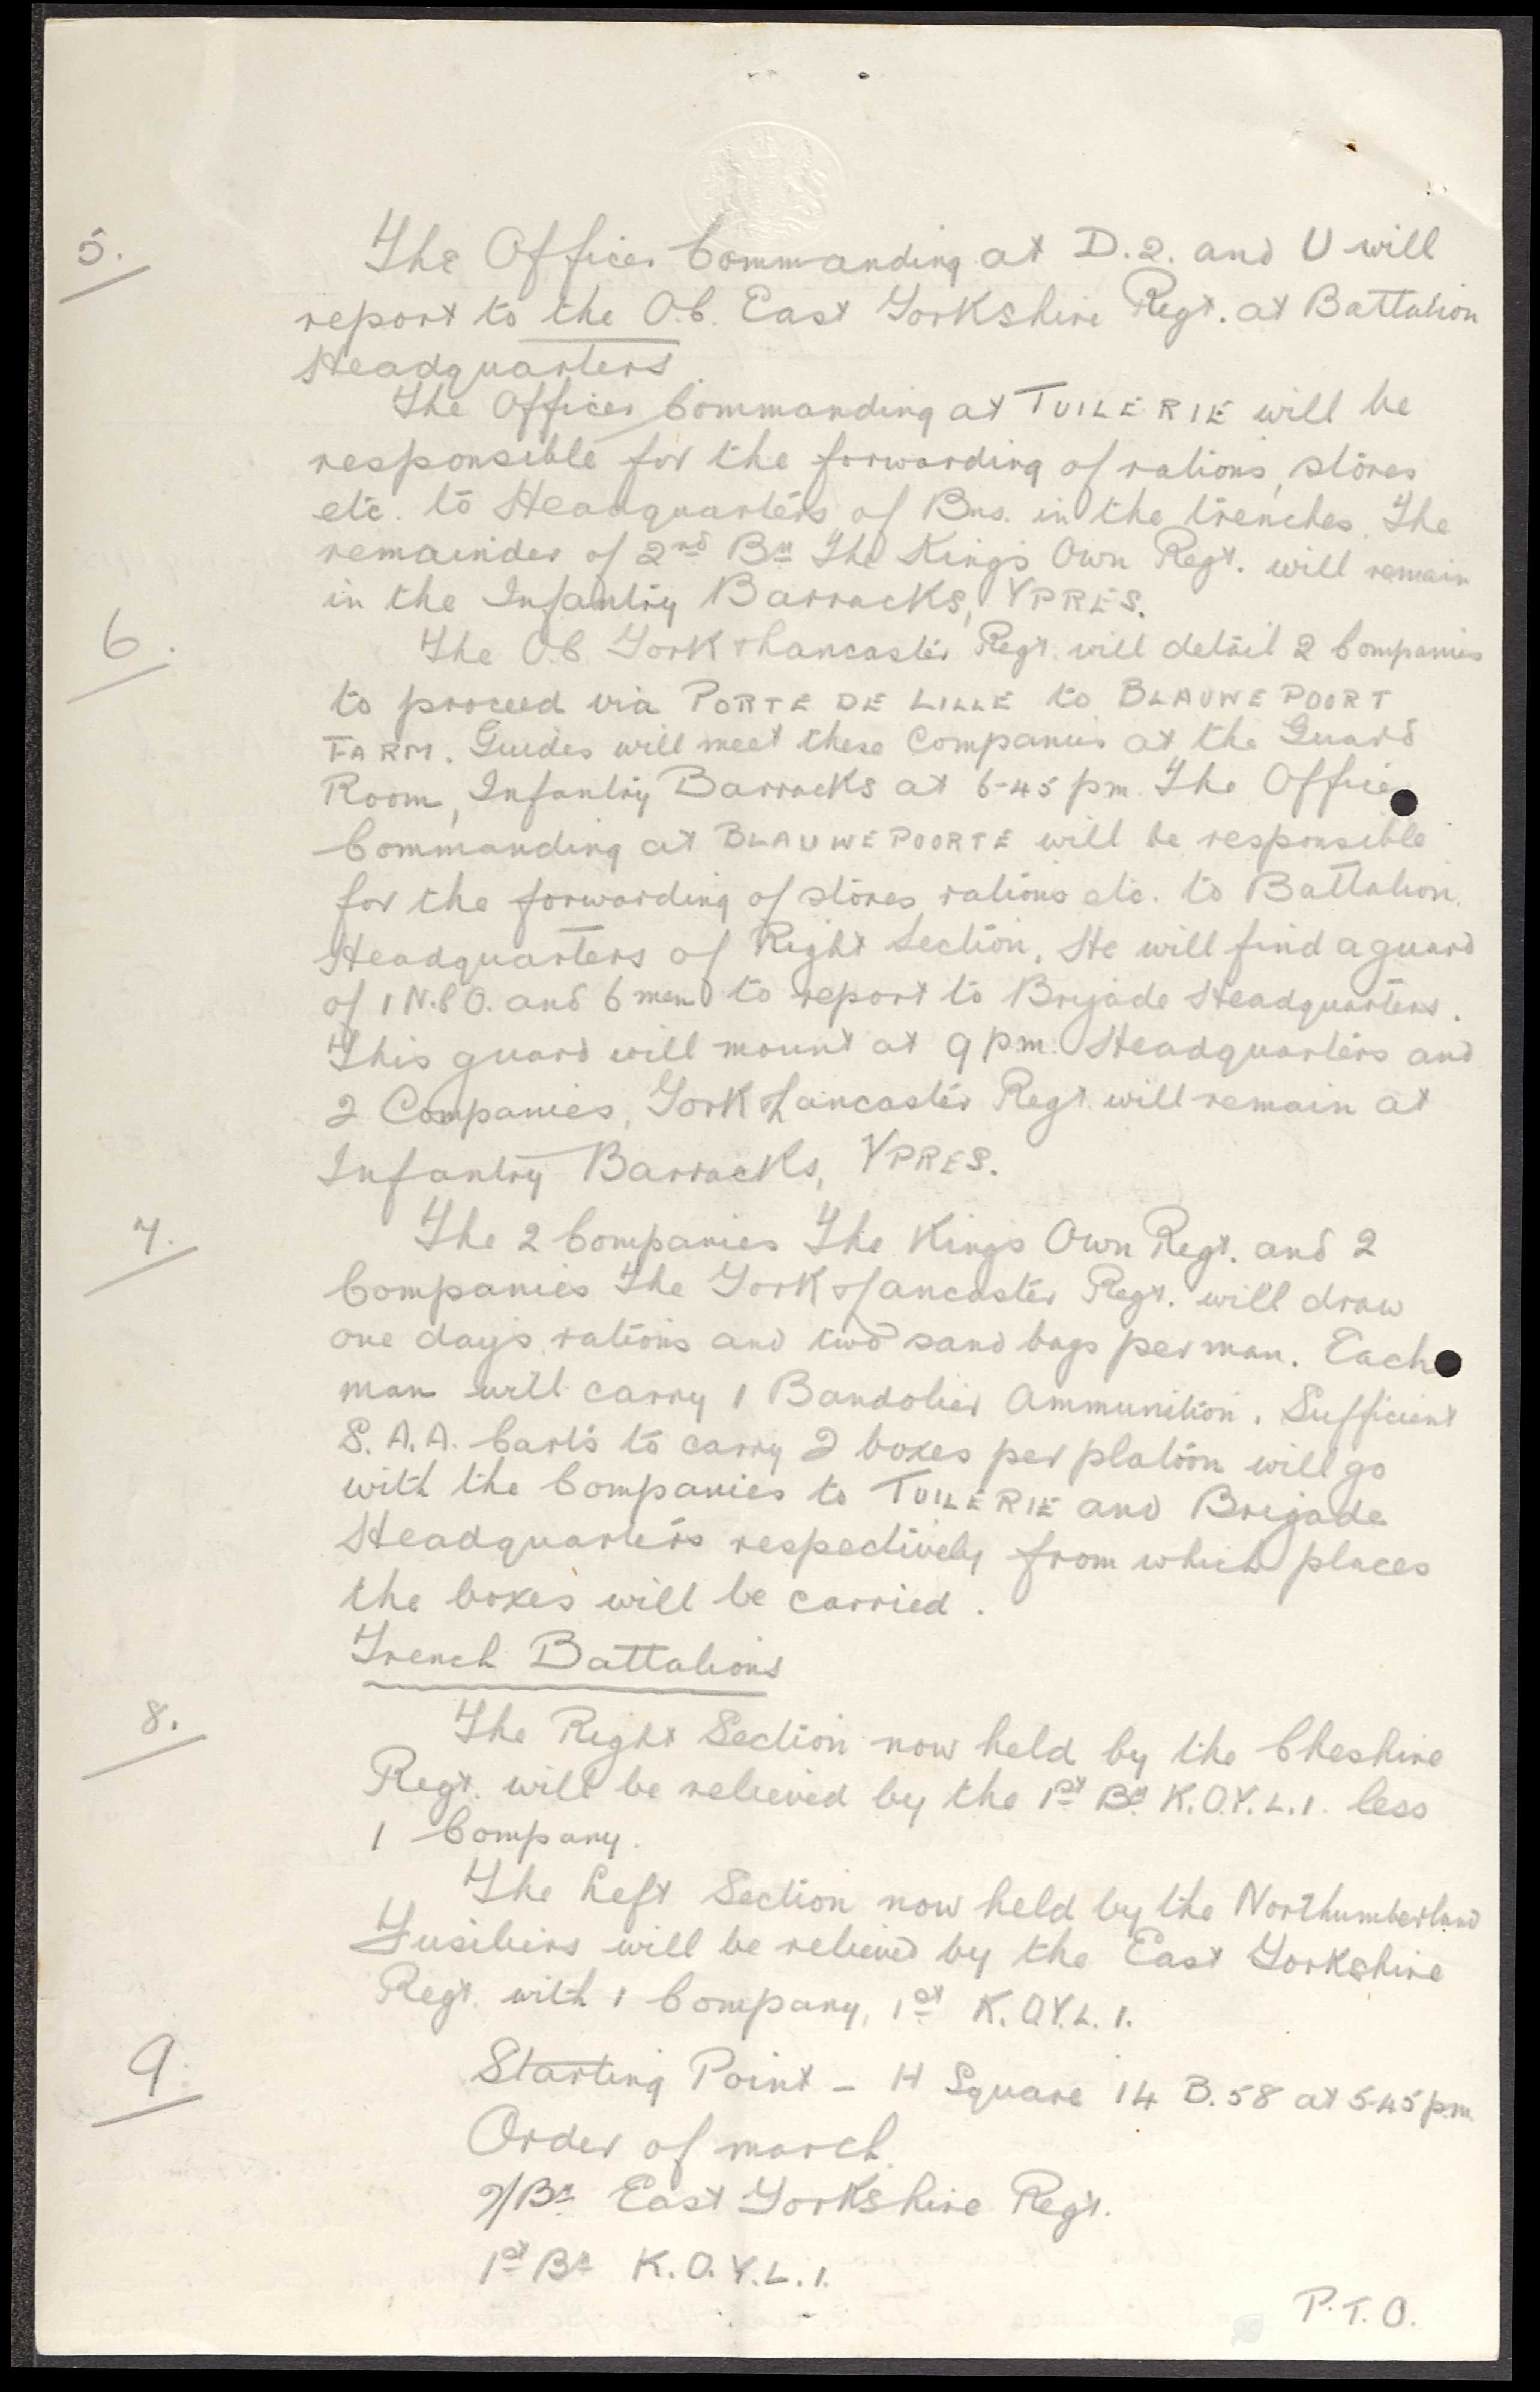 5. The Officer Commanding at D.2. and U will
report to the O.C. East Yorkshire Regt. at Battalion
Headquarters.
The Officer Commanding at TUILERIE will be
responsible for the forwarding of rations, stores
etc. to Headquarters of Bns. in the trenches. The
remainder of 2nd Bn The King's Own Regt. will remain
in the Infantry Barracks, YPRES.
6. The O.C York & Lancaster Regt. will detail 2 Companies
to proceed via PORTE DE LILLE to BLAUWEPOORT
FARM. Guides will meet these Companies at the Guard
Room, Infantry Barracks at 6-45 pm. The Officer
Commanding at BLAUWEPOORTE will be responsible
for the forwarding of stores, rations etc. to Battalion
Headquarters of Right Section. He will find a guard
of 1 N.C.O. and 6 men to report to Brigade Headquarters.
This guard will mount at 9 p.m. Headquarters and
2 Companies, York & Lancaster Regt will remain at
Infantry Barracks, YPRES.
7. The 2 Companies The King's Own Regt. and 2
Companies The York & Lancaster Regt. will draw
one day's rations and two sand bags per man. Each
man will carry 1 Bandolier Ammunition. Sufficient
S.A.A. Carts to carry 2 boxes per platoon will go
with the Companies to TUILERIE and Brigade
Headquarters respectively from which places
the boxes will be carried.
Trench Battalions
8. The Right Section now held by the Cheshire
Regt. will be relieved by the 1st Bn K.O.Y.L.I. less
1 Company.
The Left Section now held by the Northumberland
Fusiliers will be relieved by the East Yorkshire
Regt. with 1 Company, 1st K.O.Y.L.I.
9. Starting Point - H Square 14 B.58 at 5-45 p.m.
Order of march.
2/Bn East Yorkshire Regt.
1st Bn K.O.Y.L.I.
P.T.O.